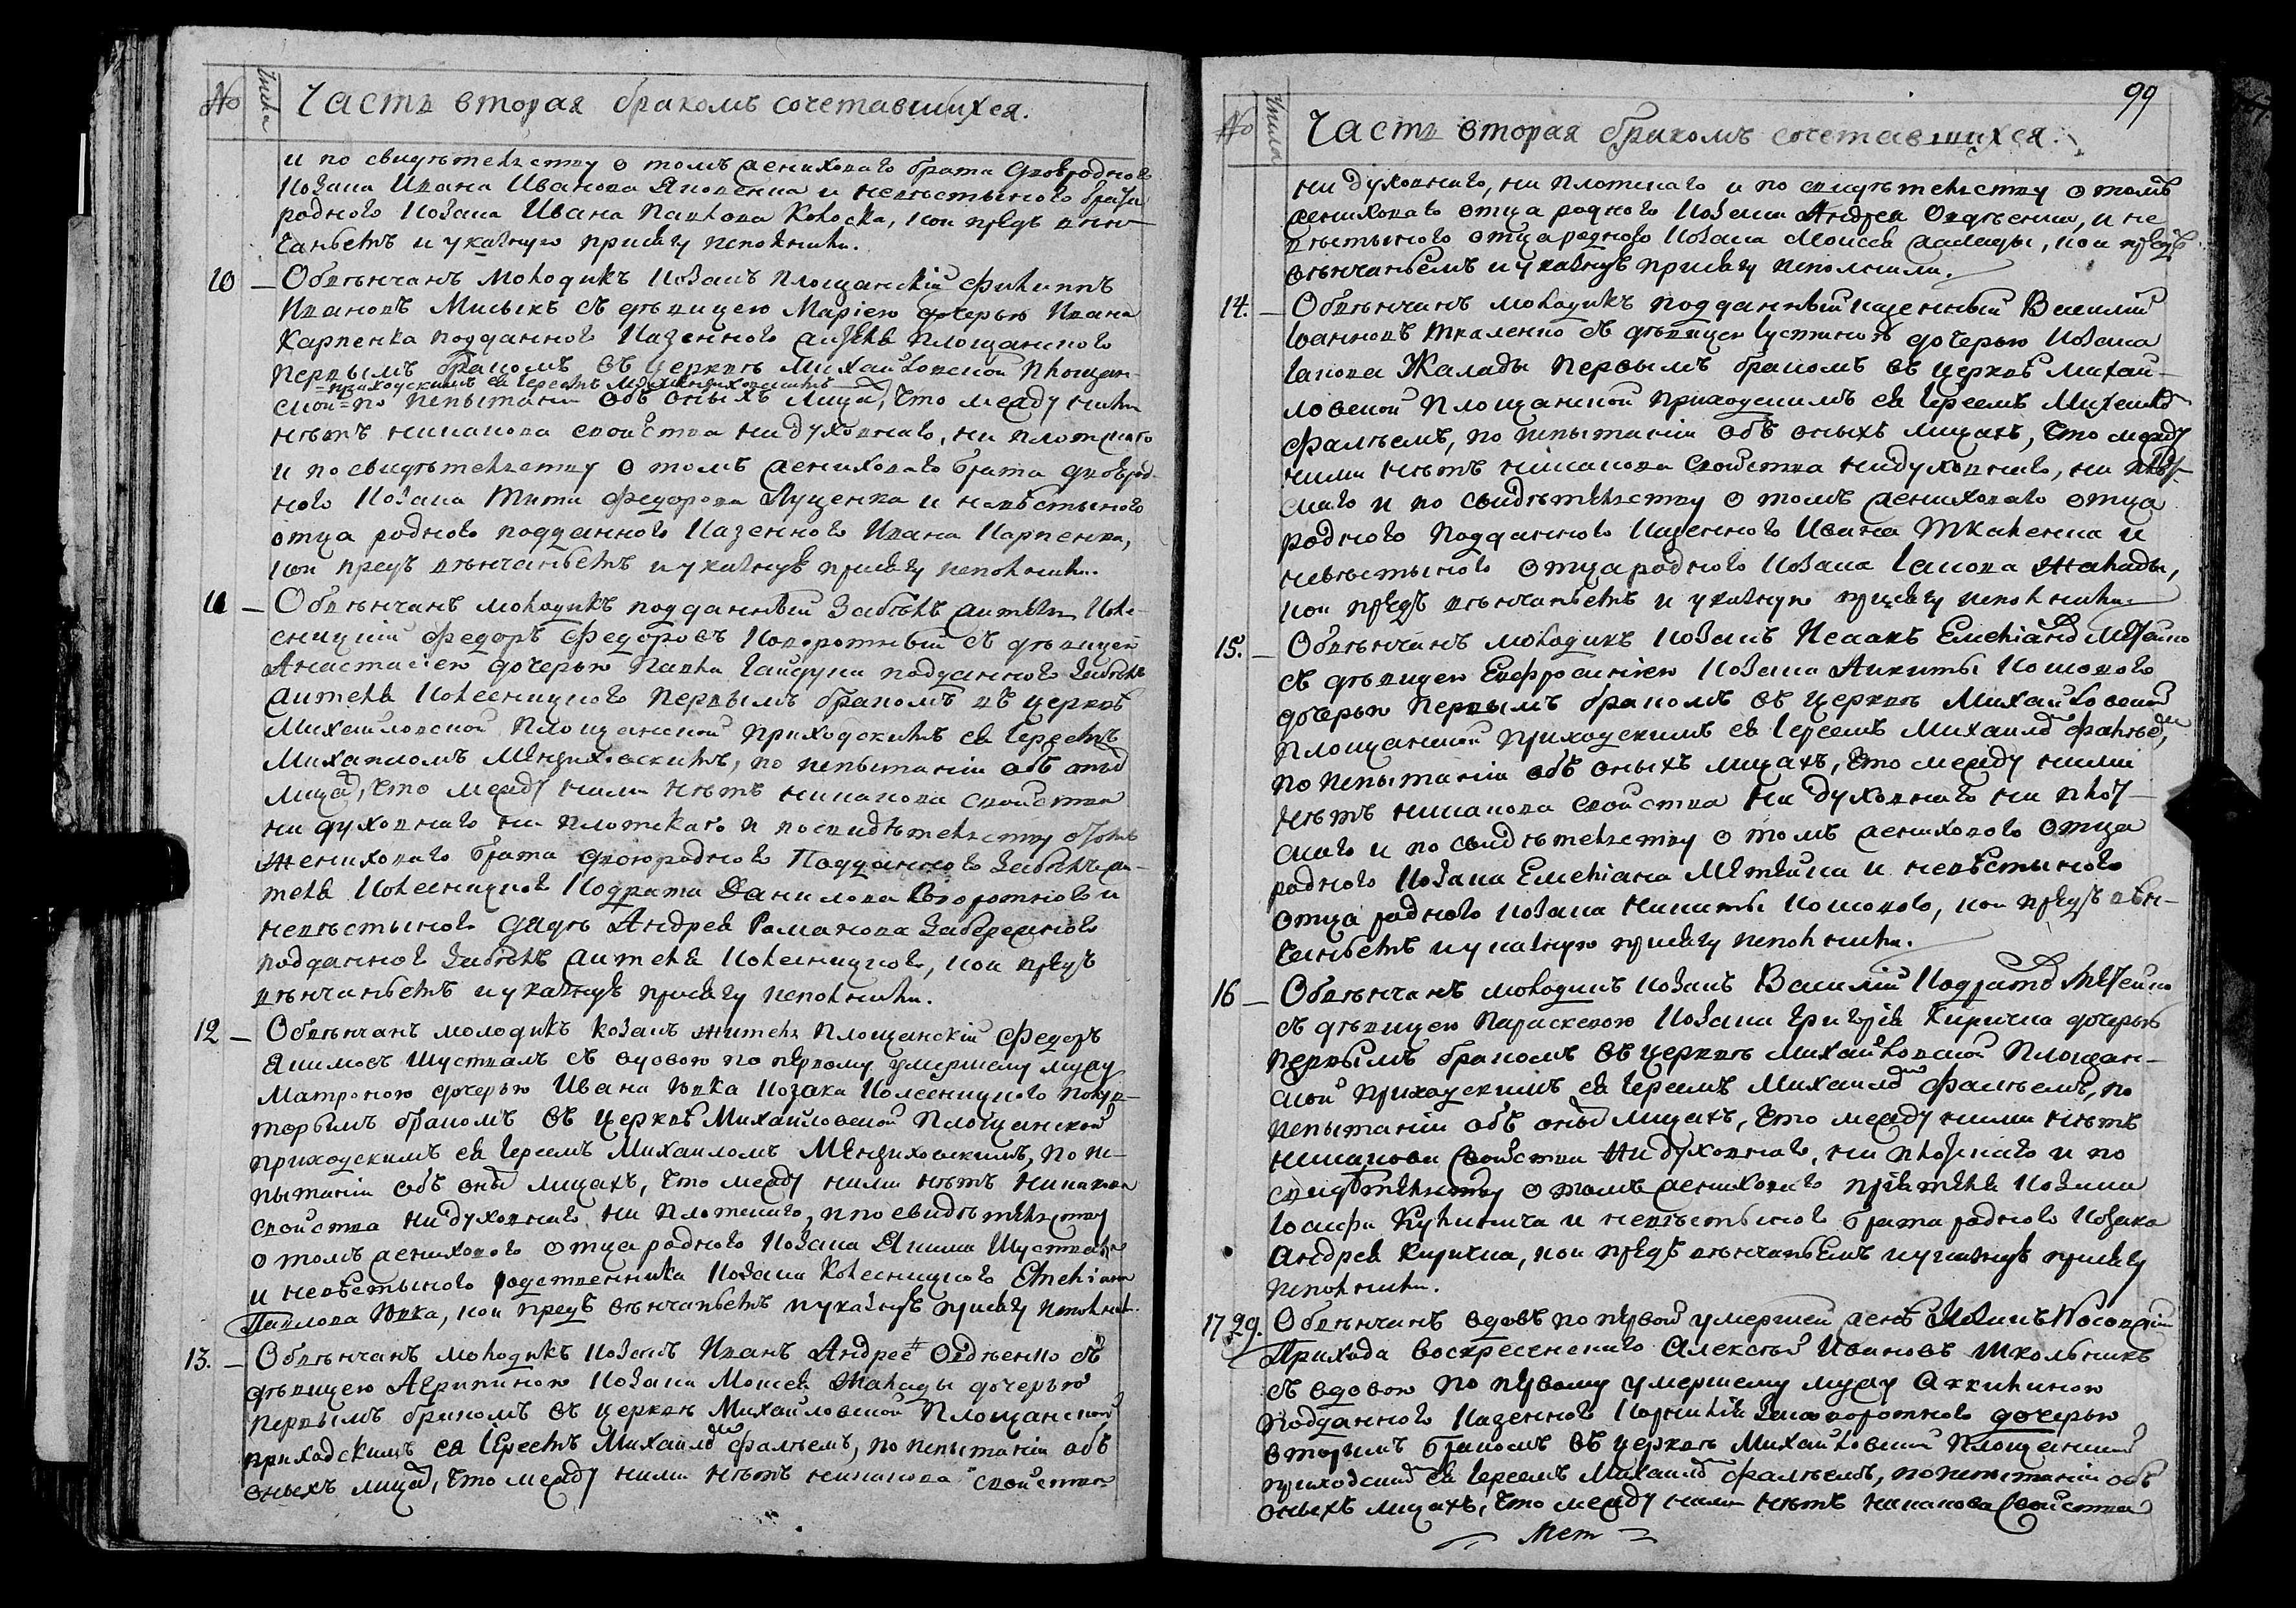 № Числа Часть вторая бракомъ сочетавшихся.
и по свидѣтельству о томъ жениховаго брата двоюродного
козака Ивана Иванова Яковенка и невѣстыного брата
родного козака Ивана Павлова, кои предъ вѣн-
чаньемъ и указную присягу исполнили.
10 — Обвѣнчанъ молодикъ козакъ Площанскій Филиппъ
Ивановъ Мисыкъ съ дѣвицею Маріею дочерью Ивана
Карпенка подданного казенного жителя Площанского
первымъ бракомъ въ церквѣ Михайловской Площан-
=приходскимъ ея Іереемъ Михаиломъ
ской=по испытаніи объ оныхъ лицахъ, что между ними
нѣтъ никакова свойства ни духовнаго, ни плотскаго
и по свидѣтельству о томъ жениховаго брата двоюрод-
ного козака Тита Федорова Луценка и невѣстыного
отца родного подданного казенного Ивана Карпенка,
кои предъ вѣнчаньемъ и указную присягу исполнили.
11 — Обвѣнчанъ молодикъ подданный житель Коле-
сницкій Федоръ Федоровъ Коворотный съ дѣвицею
Анастасіею дочерью Павла Гайдука подданного
жителя Колесницкого первымъ бракомъ въ церквѣ
Михайловской Площанской приходскимъ ея Іереемъ
Михаиломъ, по испытаніи объ оныхъ
лицахъ, что между ними нѣтъ никакова свойства
ни духовнаго ни плотскаго и по свидѣтельству о томъ
жениховаго брата двоюродного подданного жи-
теля Колесницкого Кодрата Данилова Коворотного и
невѣстыного дядѣ Андрея Романова Забережного
подданного жителя Колесницкого, кои предъ
вѣнчаньемъ и указную присягу исполнили.
12 — Обвѣнчанъ молодикъ козакъ житель Площанскій Федоръ
Якимовъ Шуствалъ съ вдовою по первому умершему мужу
Матроною дочерью Ивана Ювка козака Колесницкого
вторымъ бракомъ въ церквѣ Михайловской Площанской
приходскимъ ея Іереемъ Михаиломъ, по ис-
пытаніи объ оныхъ лицахъ, что между ними нѣтъ никакова
свойства ни духовнаго ни плотскаго, и по свидѣтельству
о томъ жениховаго отца родного козака Якима Шуствала
и невѣстыного родственника козака Колесницкого Емеліана
Павлова Ювка, кои предъ вѣнчаньемъ и указную присягу исполнили.
13. — Обвѣнчанъ молодикъ козакъ Иванъ Андреевъ Овдѣенко съ
дѣвицею Агрипиною козака Моисея Жалады дочерью
первымъ бракомъ въ церквѣ Михайловской Площанской
приходскимъ ея Іереемъ Михаиломъ Фалѣемъ, по испытаніи объ
оныхъ лицахъ, что между ними нѣтъ никакова свойства
99
№ Числа Часть вторая бракомъ сочетавшихся.
ни духовнаго, ни плотскаго и по свидѣтельству о томъ
жениховаго отца родного козака Андрея Овдѣенка, и не-
вѣстыного отца родного козака Моисея Жалады, кои предъ
вѣнчаньемъ и указную присягу исполнили.
14. — Обвѣнчанъ молодикъ подданный казенный Василій
Іоанновъ Ткаленко съ дѣвицею Іустиною дочерью козака
Іакова Жалады первымъ бракомъ въ церквѣ Михай-
ловской Площанской приходскимъ ея Іереемъ Михаиломъ
Фалѣемъ, по испытаніи объ оныхъ лицахъ, что между
ними нѣтъ никакова свойства ни духовнаго, ни плот-
скаго и по свидѣтельству о томъ жениховаго отца
родного подданного казенного Ивана Ткаленка и
невѣстыного отца родного козака Іакова Жалады,
кои предъ вѣнчаньемъ и указную присягу исполнили.
15. — Обвѣнчанъ молодикъ козакъ Исаакъ Емеліановъ
съ дѣвицею Евфросиніею козака Никиты Кошового
дочерью первымъ бракомъ въ церквѣ Михайловской
Площанской приходскимъ ея Іереемъ Михаиломъ Фалѣемъ,
по испытаніи объ оныхъ лицахъ, что между ними
нѣтъ никакова свойства ни духовнаго ни плот-
скаго и по свидѣтельству о томъ жениховаго отца
родного козака Емеліана и невѣстыного
отца родного козака Никиты Кошового, кои предъ вѣн-
чаньемъ и указную присягу исполнили.
16 — Обвѣнчанъ молодикъ козакъ Василій Кодратовъ
съ дѣвицею Параскевою козака Григорія Киричка дочерью
первымъ бракомъ въ церквѣ Михайловской Площан-
ской приходскимъ ея Іереемъ Михаиломъ Фалѣемъ, по
испытаніи объ оныхъ лицахъ, что между ними нѣтъ
никакова свойства ни духовнаго, ни плотскаго и по
свидѣтельству о томъ жениховаго пріятеля козака
Іосифа Кулинича и невѣстыного брата родного козака
Андрея Киричка, кои предъ вѣнчаньемъ и указную присягу
исполнили.
17 29. Обвѣнчанъ вдовъ по первой умершей женѣ козакъ
Прихода Воскресенскаго Алексѣй Ивановъ Школьникъ
съ вдовою по первому умершему мужу Акилиною
подданного казенного Корнилія дочерью
вторымъ бракомъ въ церквѣ Михайловской Площанской
приходскимъ ея Іереемъ Михаиломъ Фалѣемъ, по испытаніи объ
оныхъ лицахъ, что между ними нѣтъ никакова свойства